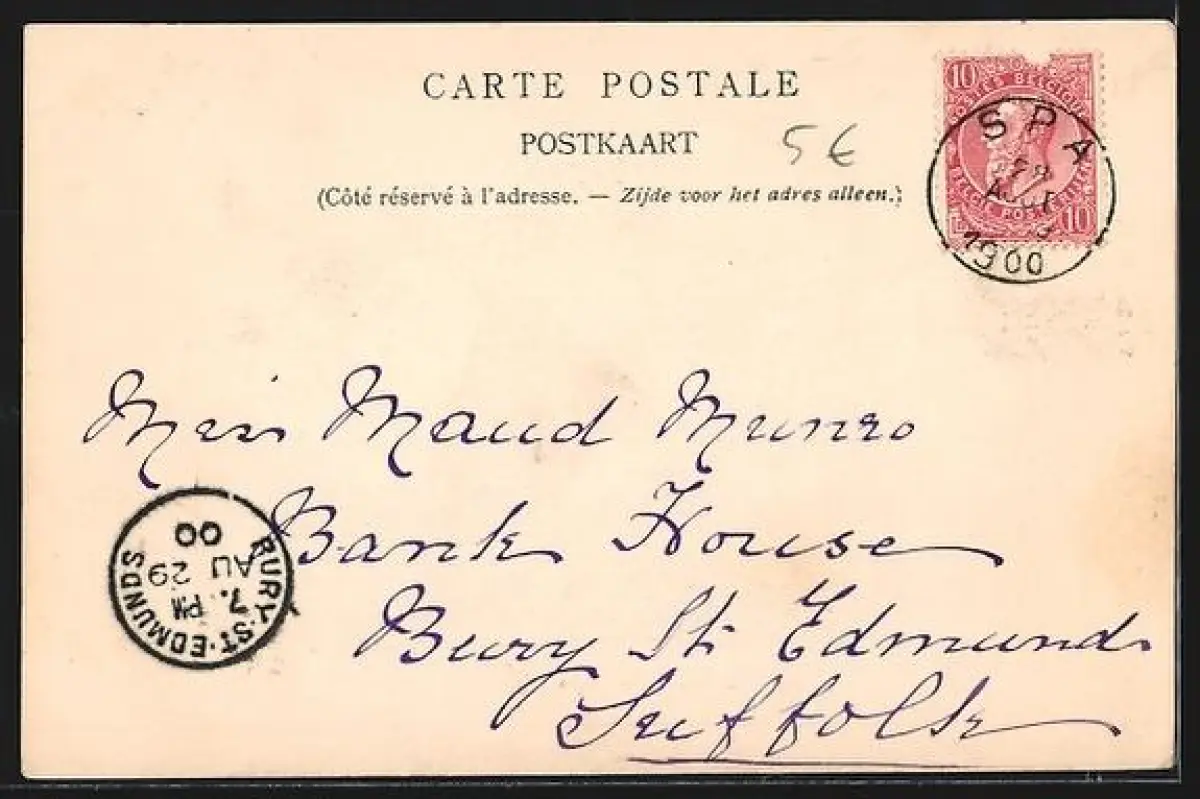 CARTE POSTALE
POSTKAART
5€
(Côté réservé à l'adresse. — Zijde voor het adres alleen.)
10 POSTES BELGIQUE
BELGIE POSTERIJEN 10
SPA
AOUT
1900
Miss Maud Munro
Bank House
Bury St. Edmunds
Suffolk
BURY·ST·EDMUNDS
7. PM
AU 29
00